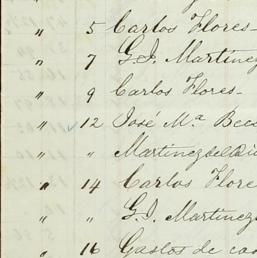 " 5 Carlos Flores-
" 7 G. I. Martinez
" 9 Carlos Flores-
" 12 José Mª
" " Martinez del
" 14 Carlos Flore
" " G. I. Martinez
" 16 Gastos de